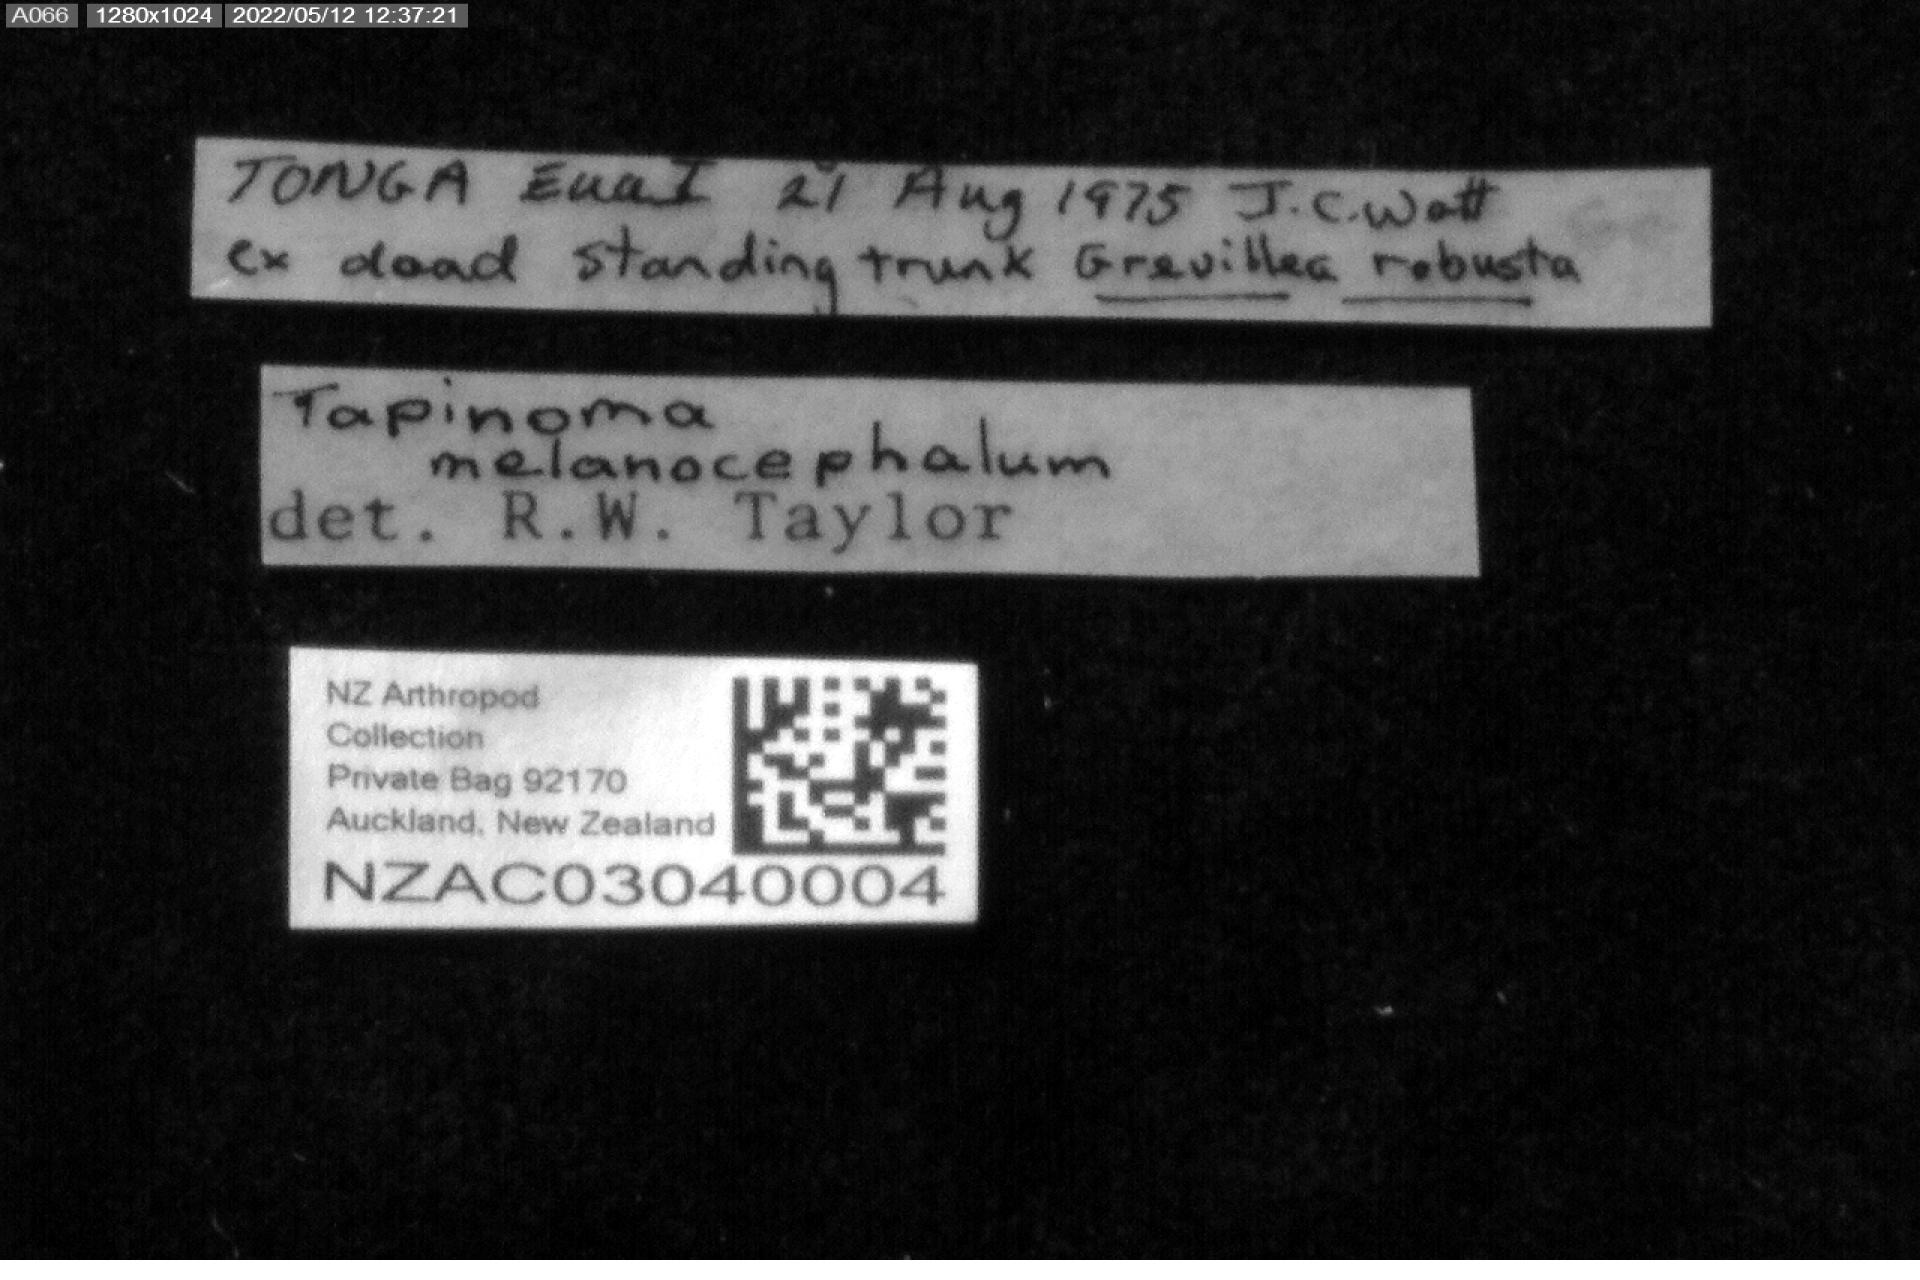 A066 1280x1024 2022/05/12 12:37:21
TONGA Eua I 21 Aug 1975 J.C. Watt
ex dead standing trunk Grevillea robusta
Tapinoma
melanocephalum
det. R.W. Taylor
NZ Arthropod
Collection
Private Bag 92170
Auckland, New Zealand
NZAC03040004